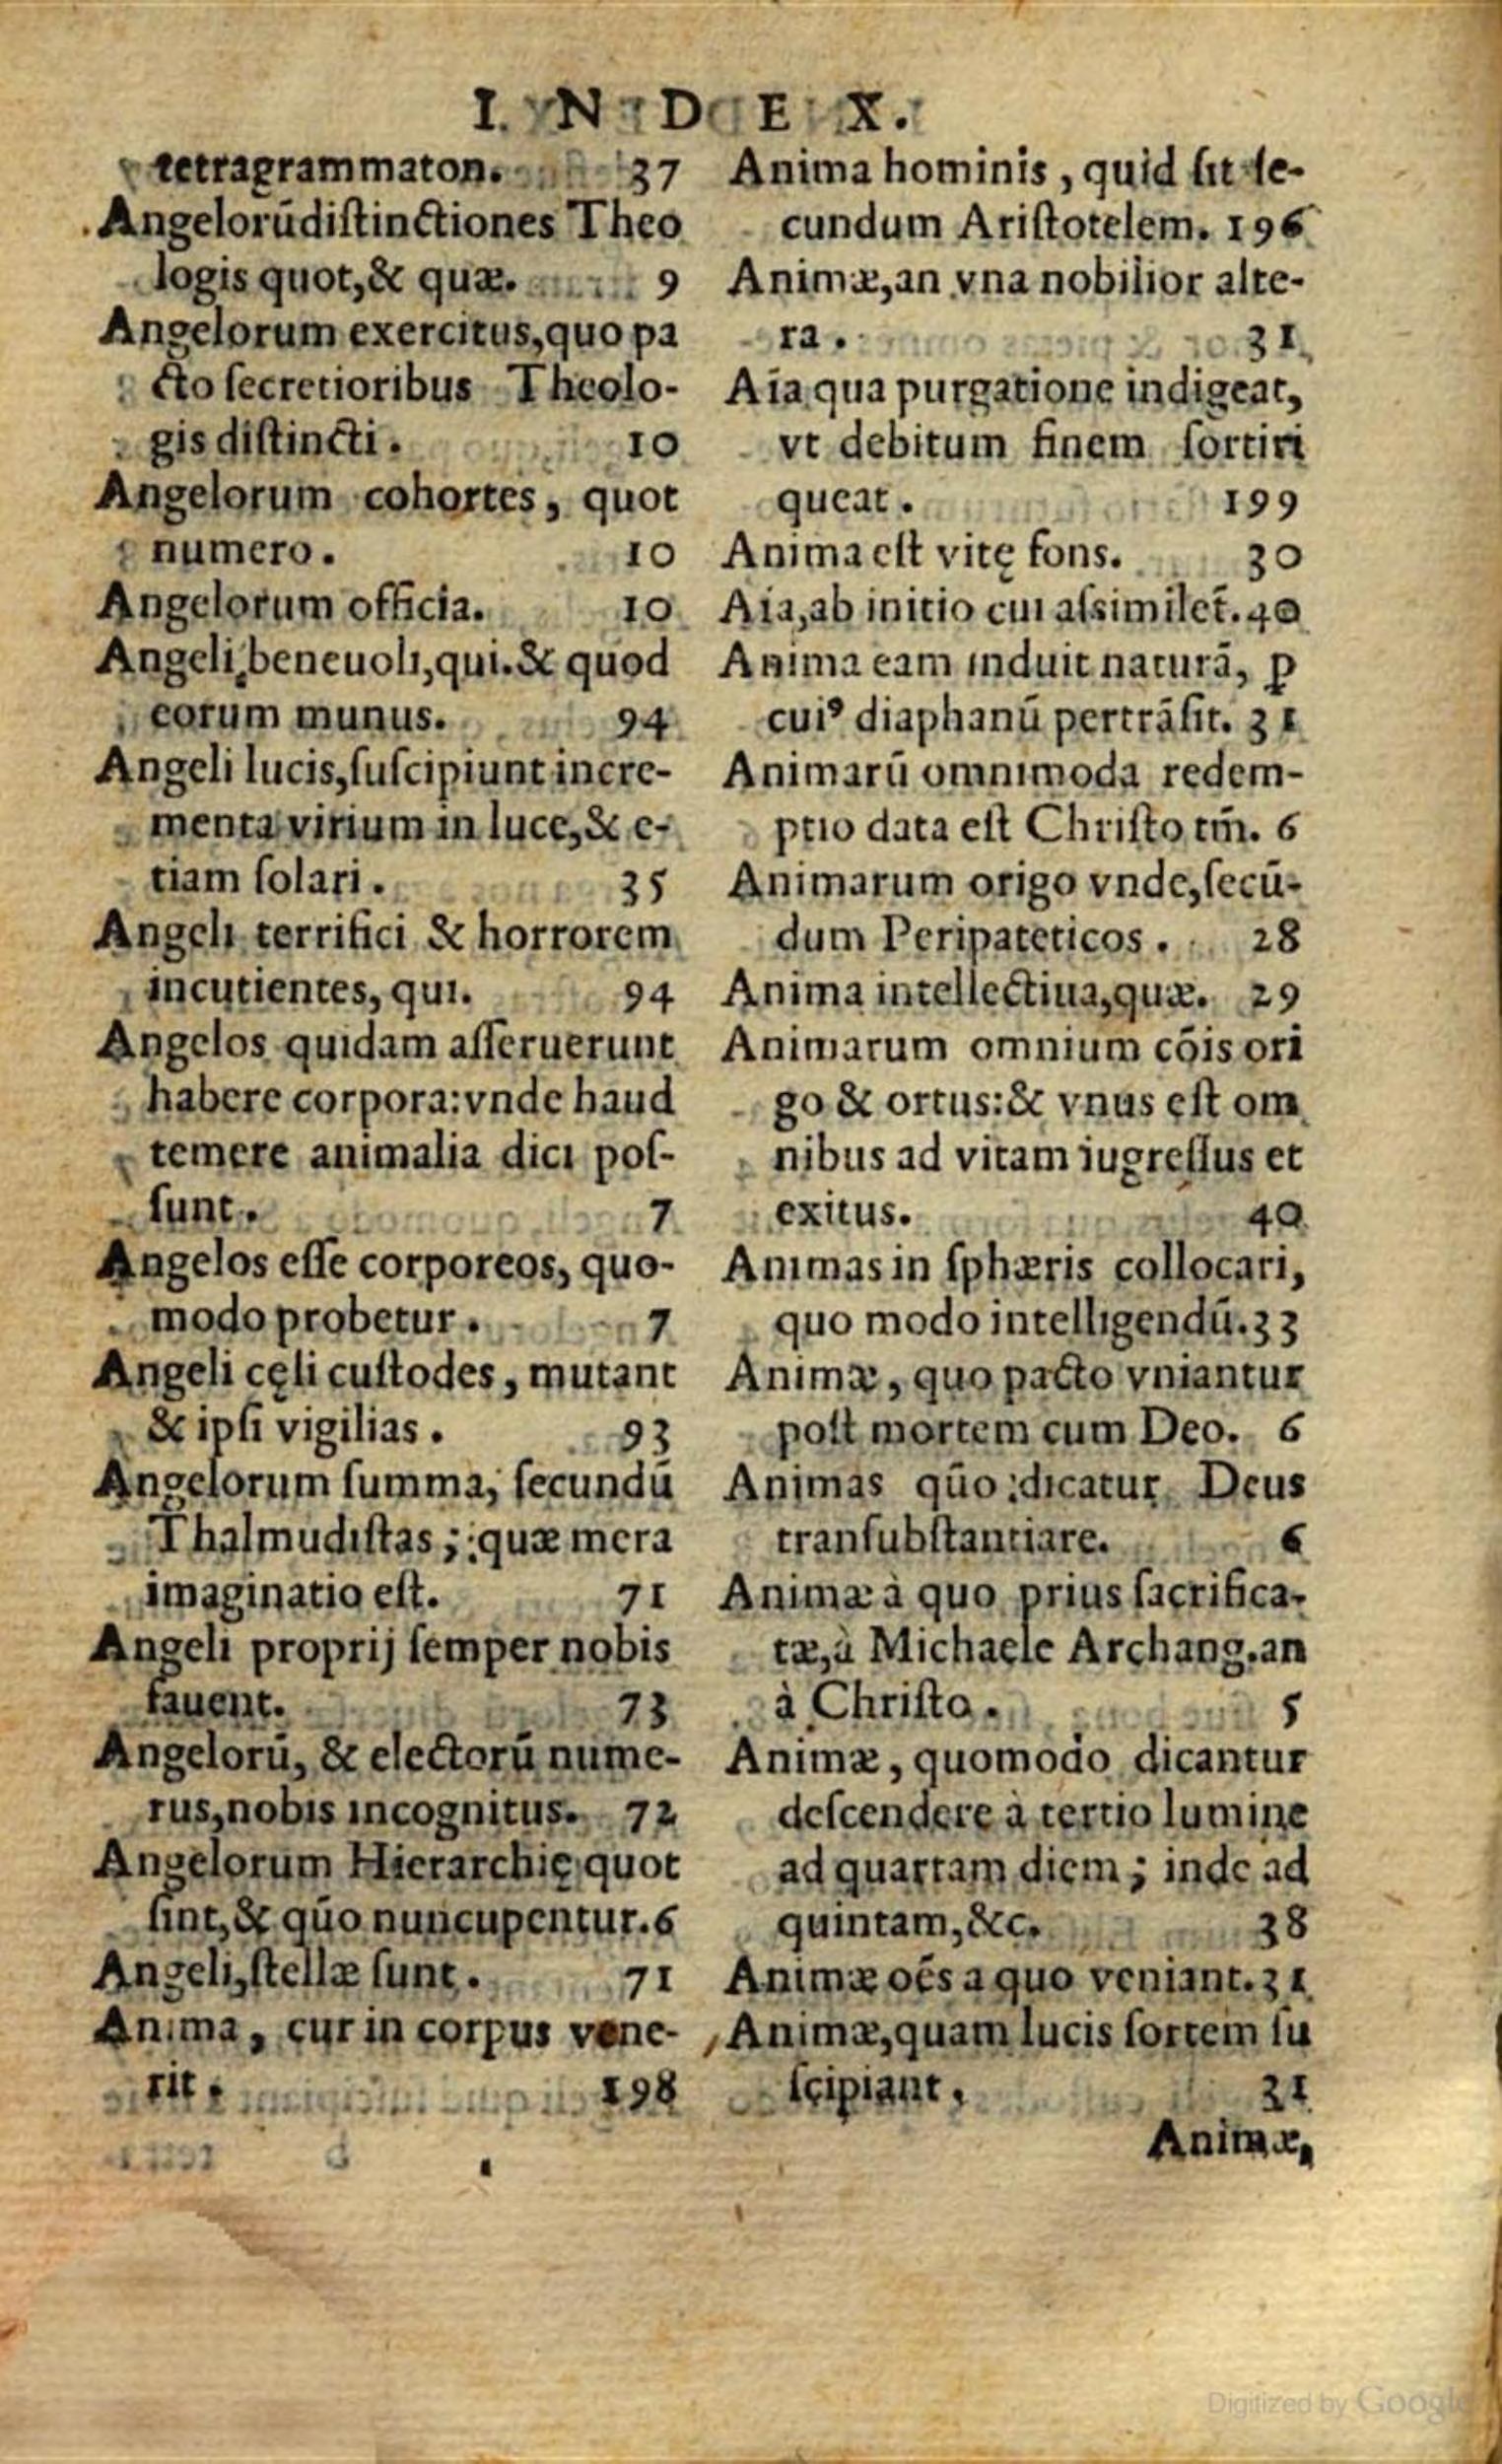 I N D E X.
tetragrammaton. 37
Angelorūdiſtinctiones Theo
logis quot,& quæ. 9
Angelorum exercitus,quo pa
cto ſecretioribus Theolo-
gis diſtincti. 10
Angelorum cohortes, quot
numero. 10
Angelorum officia. 10
Angeli beneuoli,qui.& quod
eorum munus. 94
Angeli lucis,ſuſcipiunt incre-
menta virium in luce,& e-
tiam ſolari. 35
Angeli terrifici & horrorem
incutientes, qui. 94
Angelos quidam aſſeruerunt
habere corpora:vnde haud
temere animalia dici poſ-
ſunt. 7
Angelos eſſe corporeos, quo-
modo probetur. 7
Angeli cęli cuſtodes, mutant
& ipſi vigilias. 93
Angelorum ſumma, ſecundū
Thalmudiſtas; quæ mera
imaginatio eſt. 71
Angeli proprij ſemper nobis
fauent. 73
Angelorū, & electorū nume-
rus,nobis incognitus. 72
Angelorum Hierarchię quot
ſint,& qūo nuncupentur.6
Angeli,ſtellæ ſunt. 71
Anima, cur in corpus vene-
rit. 198
Anima hominis, quid ſit ſe-
cundum Ariſtotelem. 196
Animæ,an vna nobilior alte-
ra. 31
Aīa qua purgatione indigeat,
vt debitum finem ſortiri
queat. 199
Anima eſt vitę fons. 30
Aīa,ab initio cui aſsimilet̄.40
Anima eam induit naturā, ꝑ
cuiꝰ diaphanū pertrāſit. 31
Animarū omnimoda redem-
ptio data eſt Chriſto tm̄. 6
Animarum origo vnde,ſecū-
dum Peripateticos. 28
Anima intellectiua,quæ. 29
Animarum omnium cōis ori
go & ortus:& vnus eſt om
nibus ad vitam iugreſſus et
exitus. 40
Animas in ſphæris collocari,
quo modo intelligendū.33
Animæ, quo pacto vniantur
poſt mortem cum Deo. 6
Animas qūo dicatur Deus
tranſubſtantiare. 6
Animæ à quo prius ſacrifica-
tæ,à Michaele Archang.an
à Chriſto. 5
Animæ, quomodo dicantur
deſcendere à tertio lumine
ad quartam diem; inde ad
quintam,&c. 38
Animæ oēs a quo veniant.31
Animæ,quam lucis ſortem ſu
ſcipiant. 31
Animæ,
Digitized by Google